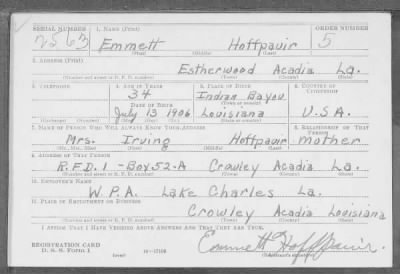 SERIAL NUMBER 1. NAME (Print) ORDER NUMBER
2563 Emmett Hoffpauir 5
(First) (Middle) (Last)
2. ADDRESS (Print)
Estherwood Acadia La.
(Number and street or R. F. D. number) (Town) (County) (State)
3. TELEPHONE 4. AGE IN YEARS 5. PLACE OF BIRTH 6. COUNTRY OF CITIZENSHIP
34 Indian Bayou
DATE OF BIRTH (Town or county)
July 13 1906 Louisiana U.S.A.
(Exchange) (Number) (Mo.) (Day) (Yr.) (State or country)
7. NAME OF PERSON WHO WILL ALWAYS KNOW YOUR ADDRESS 8. RELATIONSHIP OF THAT PERSON
Mrs. Irving Hoffpauir mother
(Mr., Mrs., Miss) (First) (Middle) (Last)
9. ADDRESS OF THAT PERSON
R.F.D. 1-Box 52-A Crowley Acadia La.
(Number and street or R. F. D. number) (Town) (County) (State)
10. EMPLOYER'S NAME
W.P.A. Lake Charles La.
11. PLACE OF EMPLOYMENT OR BUSINESS
Crowley Acadia Louisiana
(Number and street or R. F. D. number) (Town) (County) (State)
I AFFIRM THAT I HAVE VERIFIED ABOVE ANSWERS AND THAT THEY ARE TRUE.
REGISTRATION CARD Emmett Hoffpauir
D. S. S. Form 1 (over) (Registrant's signature)